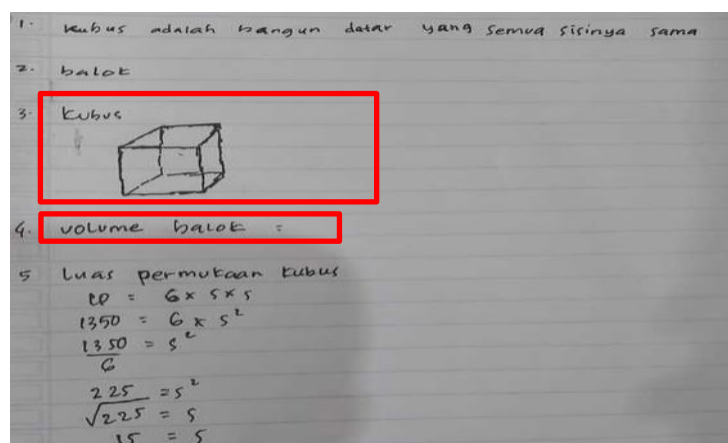 1. kubus adalah bangun datar yang semua sisinya sama
2. balok
3. kubus
4. volume balok =
5 Luas permukaan kubus
LP = 6 x s x s
1350 = 6 x s²
1350/6 = s²
225 = s²
√225 = s
15 = s